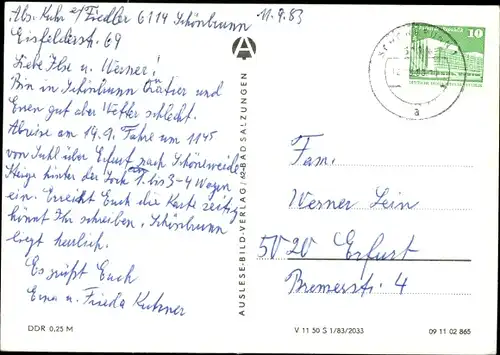 Abs. Kuhr c/Fiedler 6114 Schönbrunn 11.9.83
Eisfelderstr. 69
Liebe Ilse u. Werner!
Bin in Schönbrunn Quartier und
Essen gut aber Wetter schlecht.
Abreise am 19.9. Fahre um 1145
von Suhl über Erfurt nach Schöneweide
Steige hinter der Lock 1. bis 3-4 Wagen
ein. Erreicht Euch die Karte zeitig
könnt Ihr schreiben, Schönbrunn
liegt herlich.
Es grüßt Euch
Erna u. Frieda
A
AUSLESE-BILD-VERLAG/62 BAD SALZUNGEN
10
a
Fam.
Werner Lein
5020 Erfurt
Bremerstr. 4
DDR 0,25 M
V 11 50 S 1/83/2033
09 11 02 865